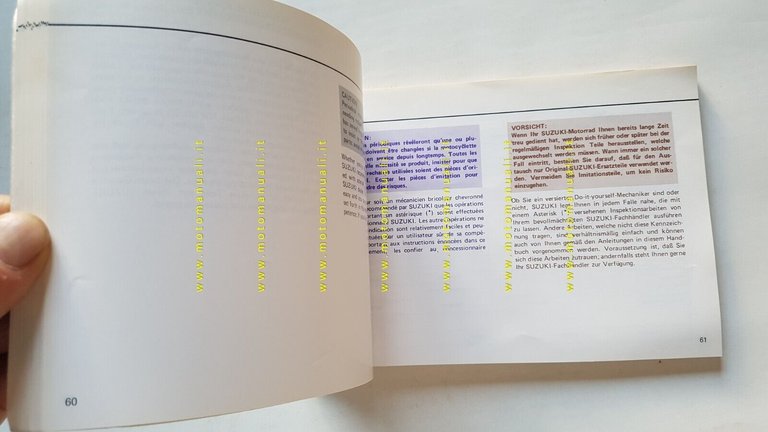 CAUTION
Periodic
Whether
SUZUKI
ed with
SUZUKI
60
N:
s périodiques révéleront qu'une ou plu-
doivent être changées si la motocyclette
en service depuis longtemps. Toutes les
lle nécessité se produit, insister pour que
rechange utilisées soient des pièces d'ori-
I. Ecarter les pièces d'imitation pour
dre des risques.
soit un mécanicien bricoleur chevronné
recommandé par SUZUKI que les opérations
portant un astérisque (*) soient effectuées
SUZUKI. Les autres opérations ne
indication sont relativement faciles et peu-
par un utilisateur sûr de sa compé-
porte aux instructions énoncées dans ce
les confier au concessionnaire
VORSICHT:
Wenn Ihr SUZUKI-Motorrad Ihnen bereits lange Zeit
treu gedient hat, werden sich früher oder später bei der
regelmäßigen Inspektion Teile herausstellen, welche
ausgewechselt werden müssen. Wann immer ein solcher
Fall eintritt, bestehen Sie darauf, daß für den Aus-
tausch nur Original-SUZUKI-Ersatzteile verwendet wer-
den. Vermeiden Sie Imitationsteile, um kein Risiko
einzugehen.
Ob Sie ein versierter Do-it-yourself-Mechaniker sind oder
nicht, SUZUKI legt Ihnen in jedem Falle nahe, die mit
einem Asterisk (*) versehenen Inspektionsarbeiten von
Ihrem bevollmächtigten SUZUKI-Fachhändler ausführen
zu lassen. Andere Arbeiten, welche nicht diese Kennzeich-
nung tragen, sind verhältnismäßig einfach und können
auch von Ihnen gemäß den Anleitungen in diesem Hand-
buch vorgenommen werden. Voraussetzung ist, daß Sie
sich diese Arbeiten zutrauen; andernfalls steht Ihnen gerne
Ihr SUZUKI-Fachhändler zur Verfügung.
61
www.motomanuali.it
www.motomanuali.it
www.motomanuali.it
www.motomanuali.it
www.motomanuali.it
www.motomanuali.it
www.motomanuali.it